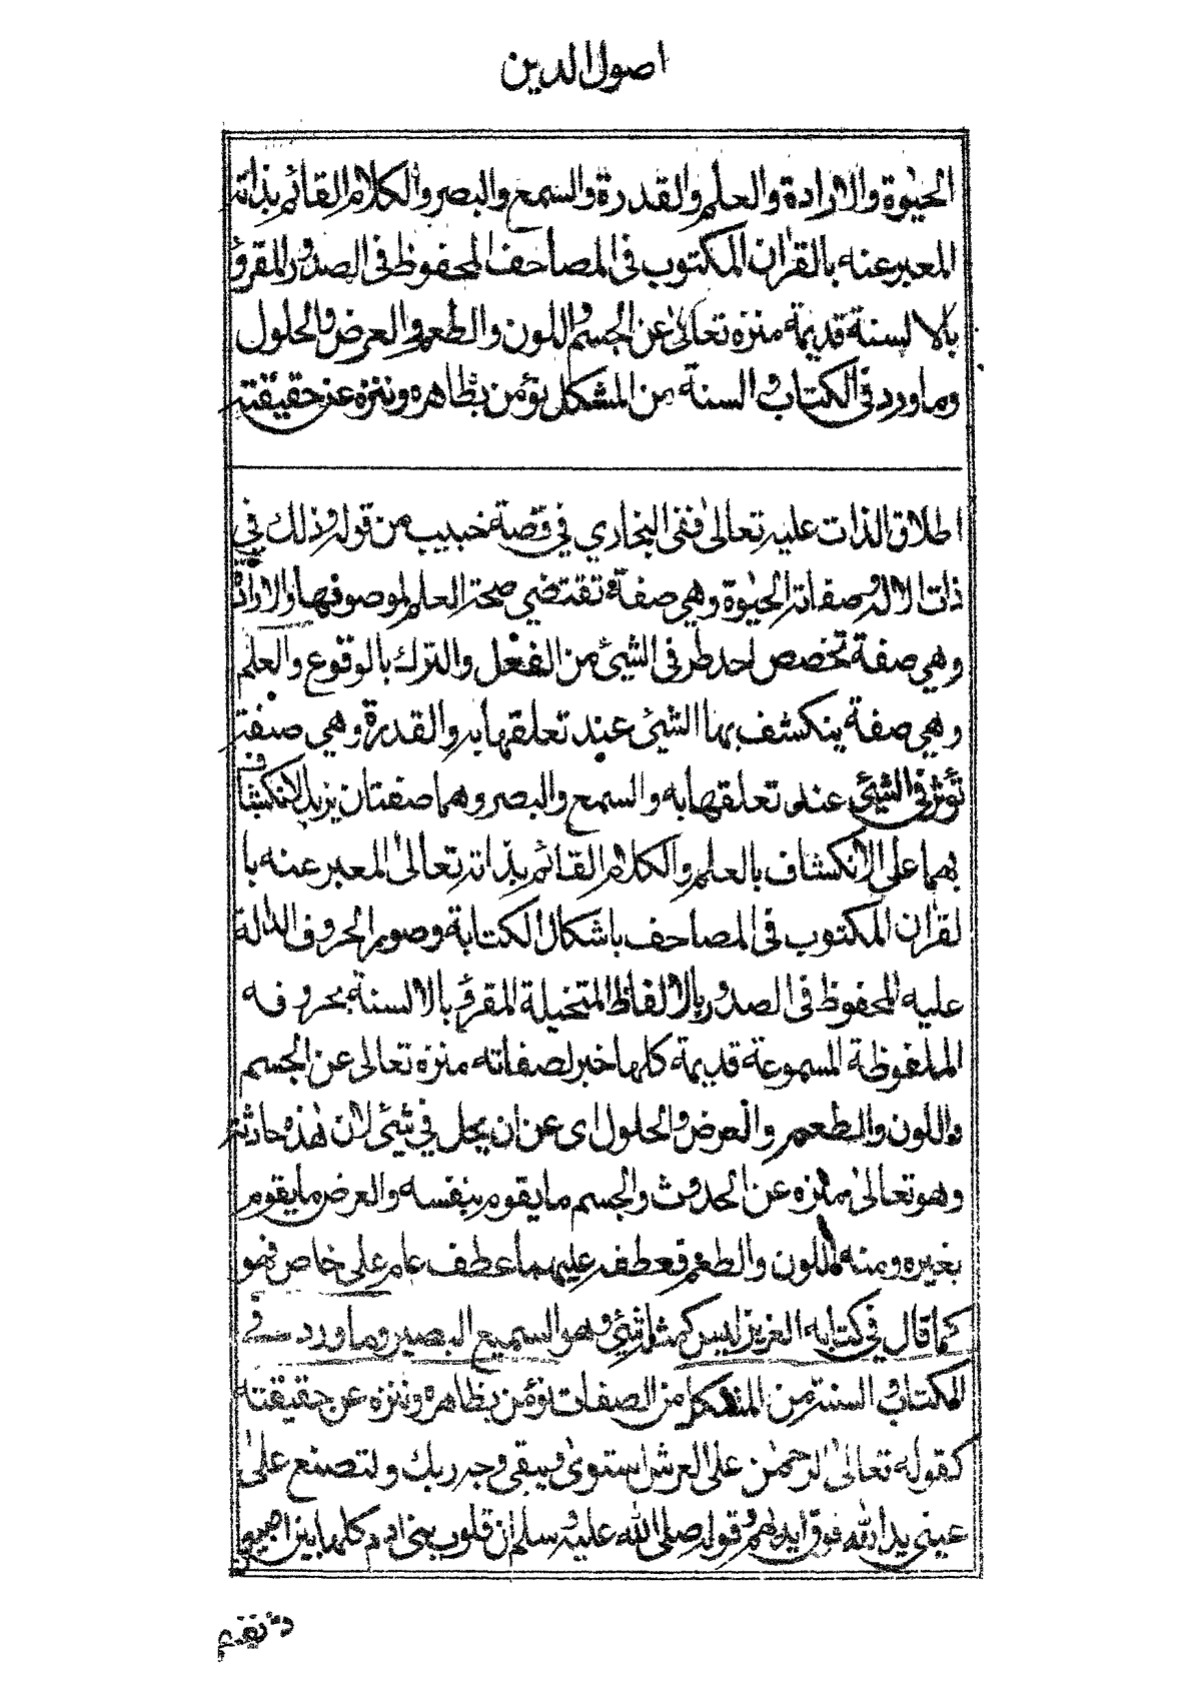 اصول الدين
الحيٰوة والارادة والعلم والقدرة والسمع والبصر والكلام القائم بذاته
المعبر عنه بالقرآن المكتوب فى المصاحف المحفوظ فى الصدور المقرؤ
بالالسنة قديمة منزه تعالىٰ عن الجسم واللون والطعم والعرض والحلول
وما ورد فى الكتاب والسنة من المشكل نؤمن بظاهره وننزه عن حقيقته
اطلاق الذات عليه تعالىٰ ففى البخاري في قصة خبيب من قوله وذلك في
ذات الاله وصفاته الحيٰوة وهي صفة تقتضي صحة العلم لموصوفها والارادة
وهي صفة تخصص احد طرفى الشيئ من الفعل والترك بالوقوع والعلم
وهي صفة ينكشف بها الشيئ عند تعلقها به والقدرة وهي صفة
تؤثر فى الشيئ عند تعلقها به والسمع والبصر وهما صفتان يزيد الانكشاف
بهما على الانكشاف بالعلم والكلام القائم بذاته تعالىٰ المعبر عنه با
لقرآن المكتوب فى المصاحف باشكال الكتابة وصور الحروف الدالة
عليه المحفوظ فى الصدور بالالفاظ المتخيلة المقرؤ بالالسنة بحروفه
الملفوظة المسموعة قديمة كلها خبر لصفاته منزه تعالى عن الجسم
واللون والطعم والعرض والحلول اى عن ان يحل في شيئ لان هٰذه حادثة
وهو تعالىٰ منزه عن الحدوث والجسم ما يقوم بنفسه والعرض ما يقوم
بغيره ومنه اللون والطعم فعطفه عليهما عطف عام على خاص فهو
كما قال في كتابه العزيز ليس كمثله شيئ وهو السميع البصير وما ورد في
الكتاب والسنة من المشكل من الصفات نؤمن بظاهره وننزه عن حقيقته
كقوله تعالىٰ الرحمٰن على العرش استوىٰ ويبقى وجه ربك ولتصنع علىٰ
عيني يد الله فوق ايديهم وقوله صلى الله عليه وسلم ان قلوب بنى ادم كلها بين اصبعين